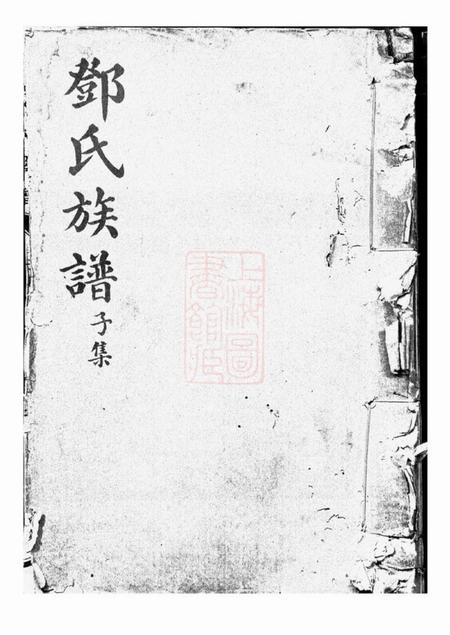 鄧氏族譜
子集
上海圖
書館藏